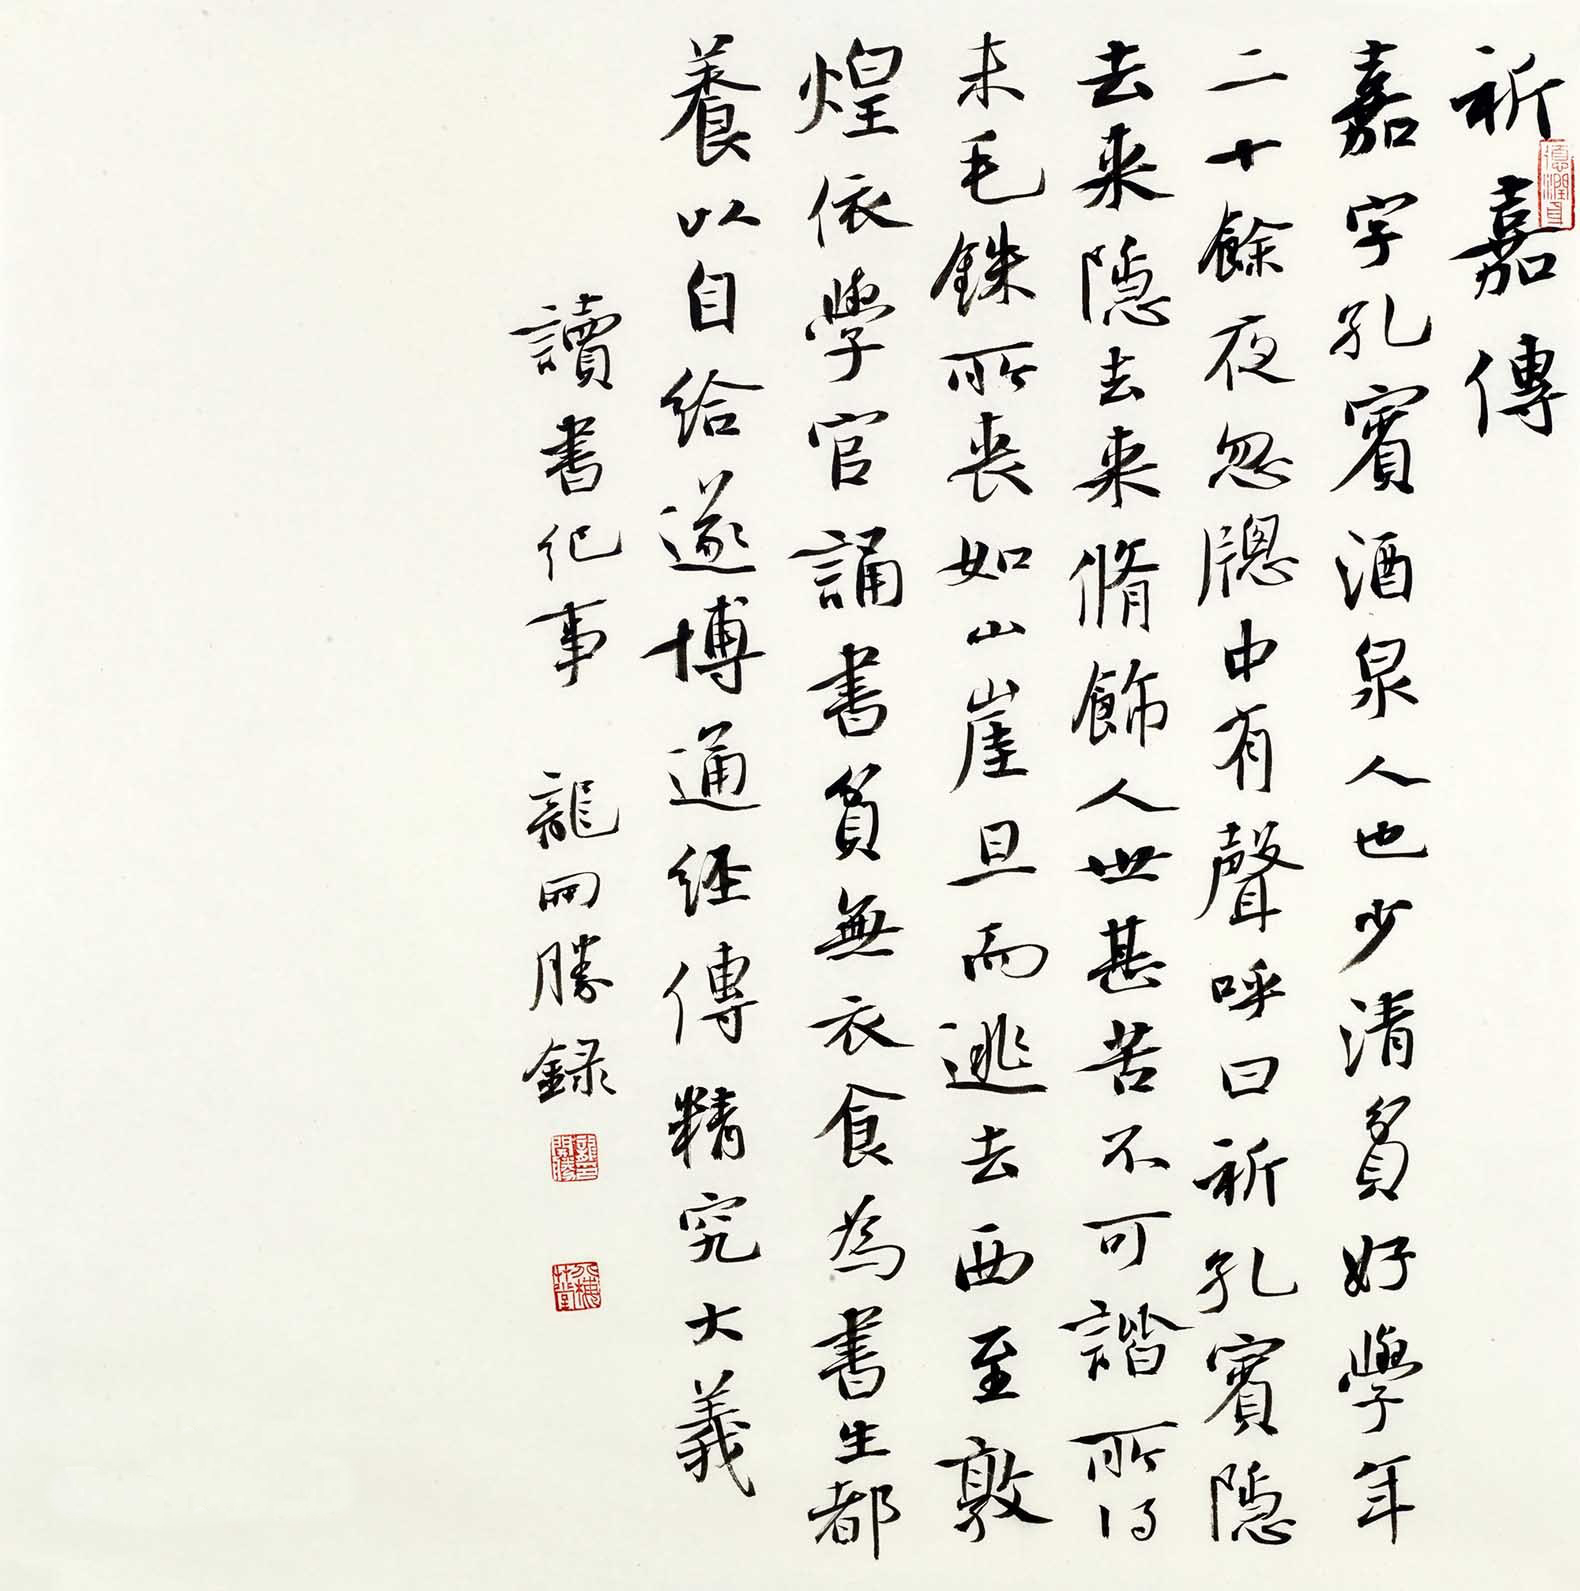 祈嘉傳
嘉字孔賓酒泉人也少清貧好學年
二十餘夜忽牕中有聲呼曰祈孔賓隱
去來隱去來脩飾人世甚苦不可諧所得
未毛銖所喪如山崖旦而逃去西至敦
煌依學官誦書貧無衣食為書生都
養以自給遂博通經傳精究大義
讀書紀事 龍開勝録
德潤身
龍開勝印